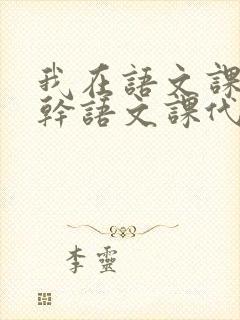 我在語文課
幹語文課代
李靈